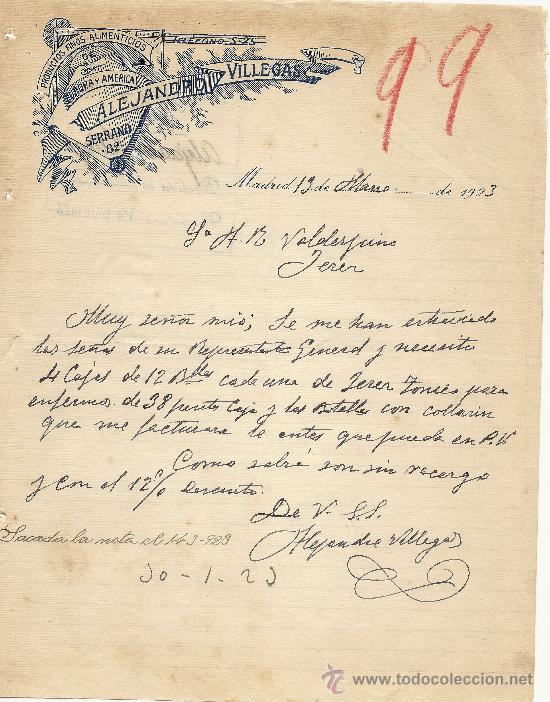 PRODUCTOS FINOS ALIMENTICIOS
TELÉFONO-S-25
Y AMERICA
ALEJANDRO VILLEGAS
SERRANO
99
Madrid 13 de Marzo de 1923
Sr A. R Valdespino
Jerez
Muy señor mio; Se me han extraviado
las señas de su Representante General y necesito
Cajas de 12 Blls cada una de Jerez Tonico para
enfermos de 38 pesetas Caja y las Botellas con collarin
que me facturara lo antes que pueda en P.V
Como sabrá son sin recargo
y con el 12% Descuento.
De V. S.S.
Alejandro Villegas
Sacada la nota el 14-3-923
30-1-23
www.todocoleccion.net